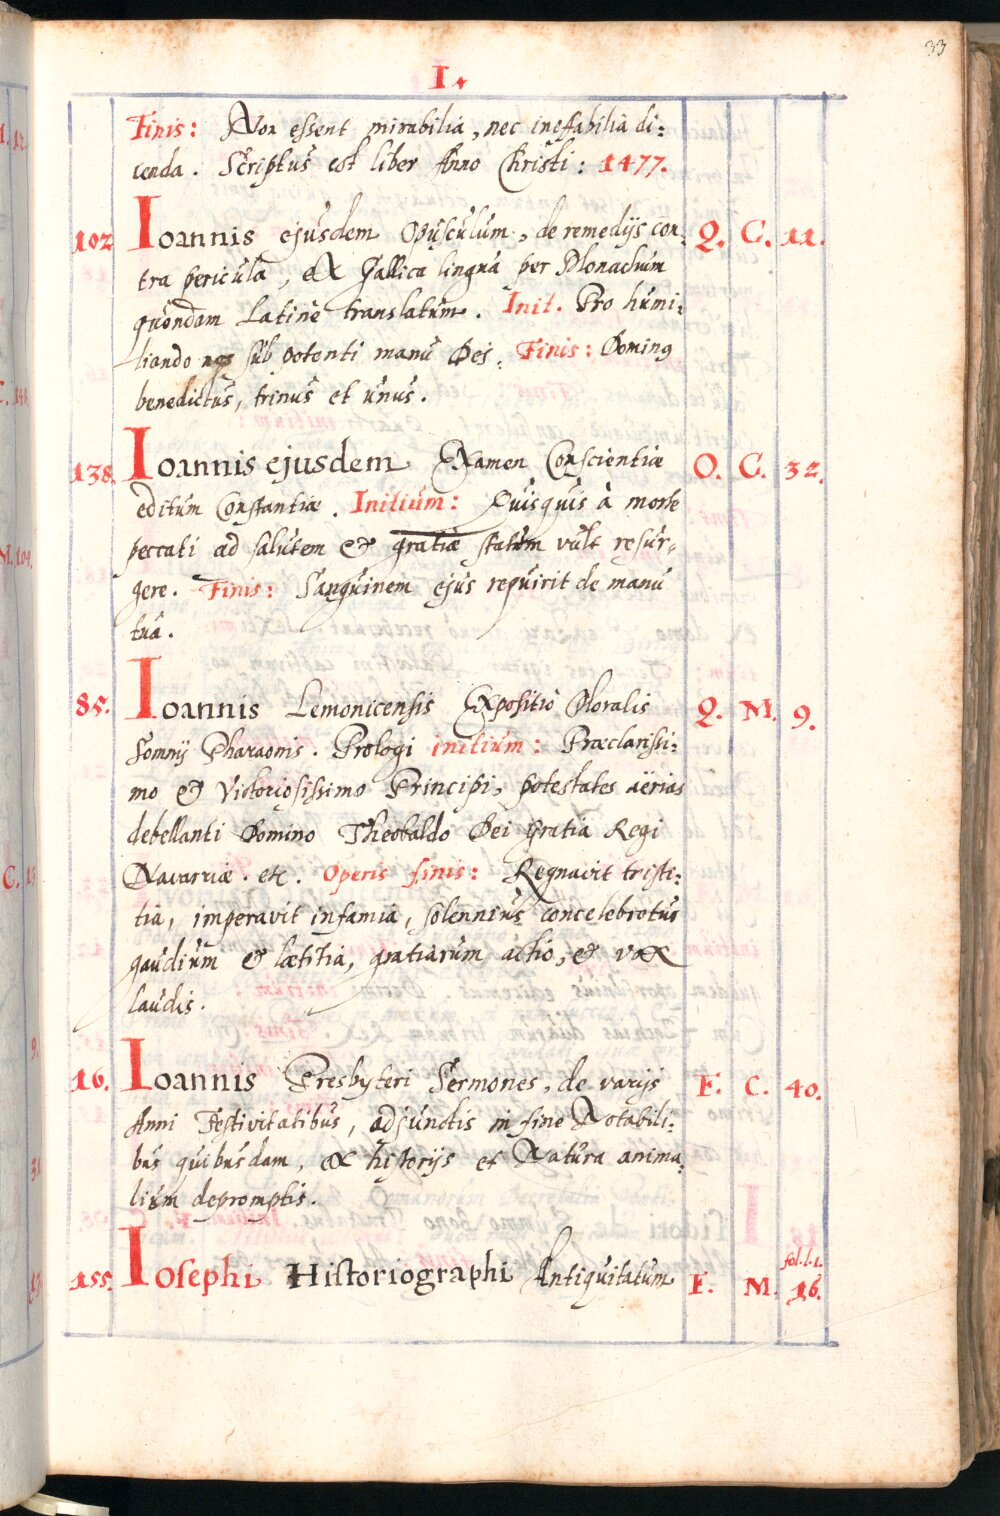 33
I.
Finis: Non essent mirabilia, nec ineffabilia di:
cenda. Scriptus est liber Anno Christi: 1477.
102 Ioannis ejusdem Opusculum, de remedijs con: Q. C. 11.
tra pericula, ex Gallica lingua per Monachum
quondam Latinè translatum. Init. Pro humi:
liando nos sub potenti manu Dei. Finis: Dominus
benedictus, trinus et unus.
138. Ioannis ejusdem Examen Conscientiæ O. C. 32.
editum Constantiæ. Initium: Quisquis à morte
peccati ad salutem & gratiæ statum vult resur:
gere. Finis: Sanguinem ejus requirit de manu
tua.
85. Ioannis Lemonicensis Expositio Moralis Q. M. 9.
Somnij Pharaonis. Prologi initium: Præclarissi:
mo & Victoriosissimo Principi, potestates aërias
debellanti Domino Theobaldo Dei gratia Regi
Navarriæ. etc. Operis finis: Regnavit tristi:
tia, imperavit infamia, solennius concelebratus
gaudium & lætitia, gratiarum actio, & vox
laudis.
16. Ioannis Presbyteri Sermones, de varijs F. C. 40.
Anni Festivitatibus, adjunctis in fine Notabili:
bus quibusdam, ex historijs et Natura anima:
lium depromptis.
fol. l. 1.
155. Iosephi Historiographi Antiquitatum F. M. 16.